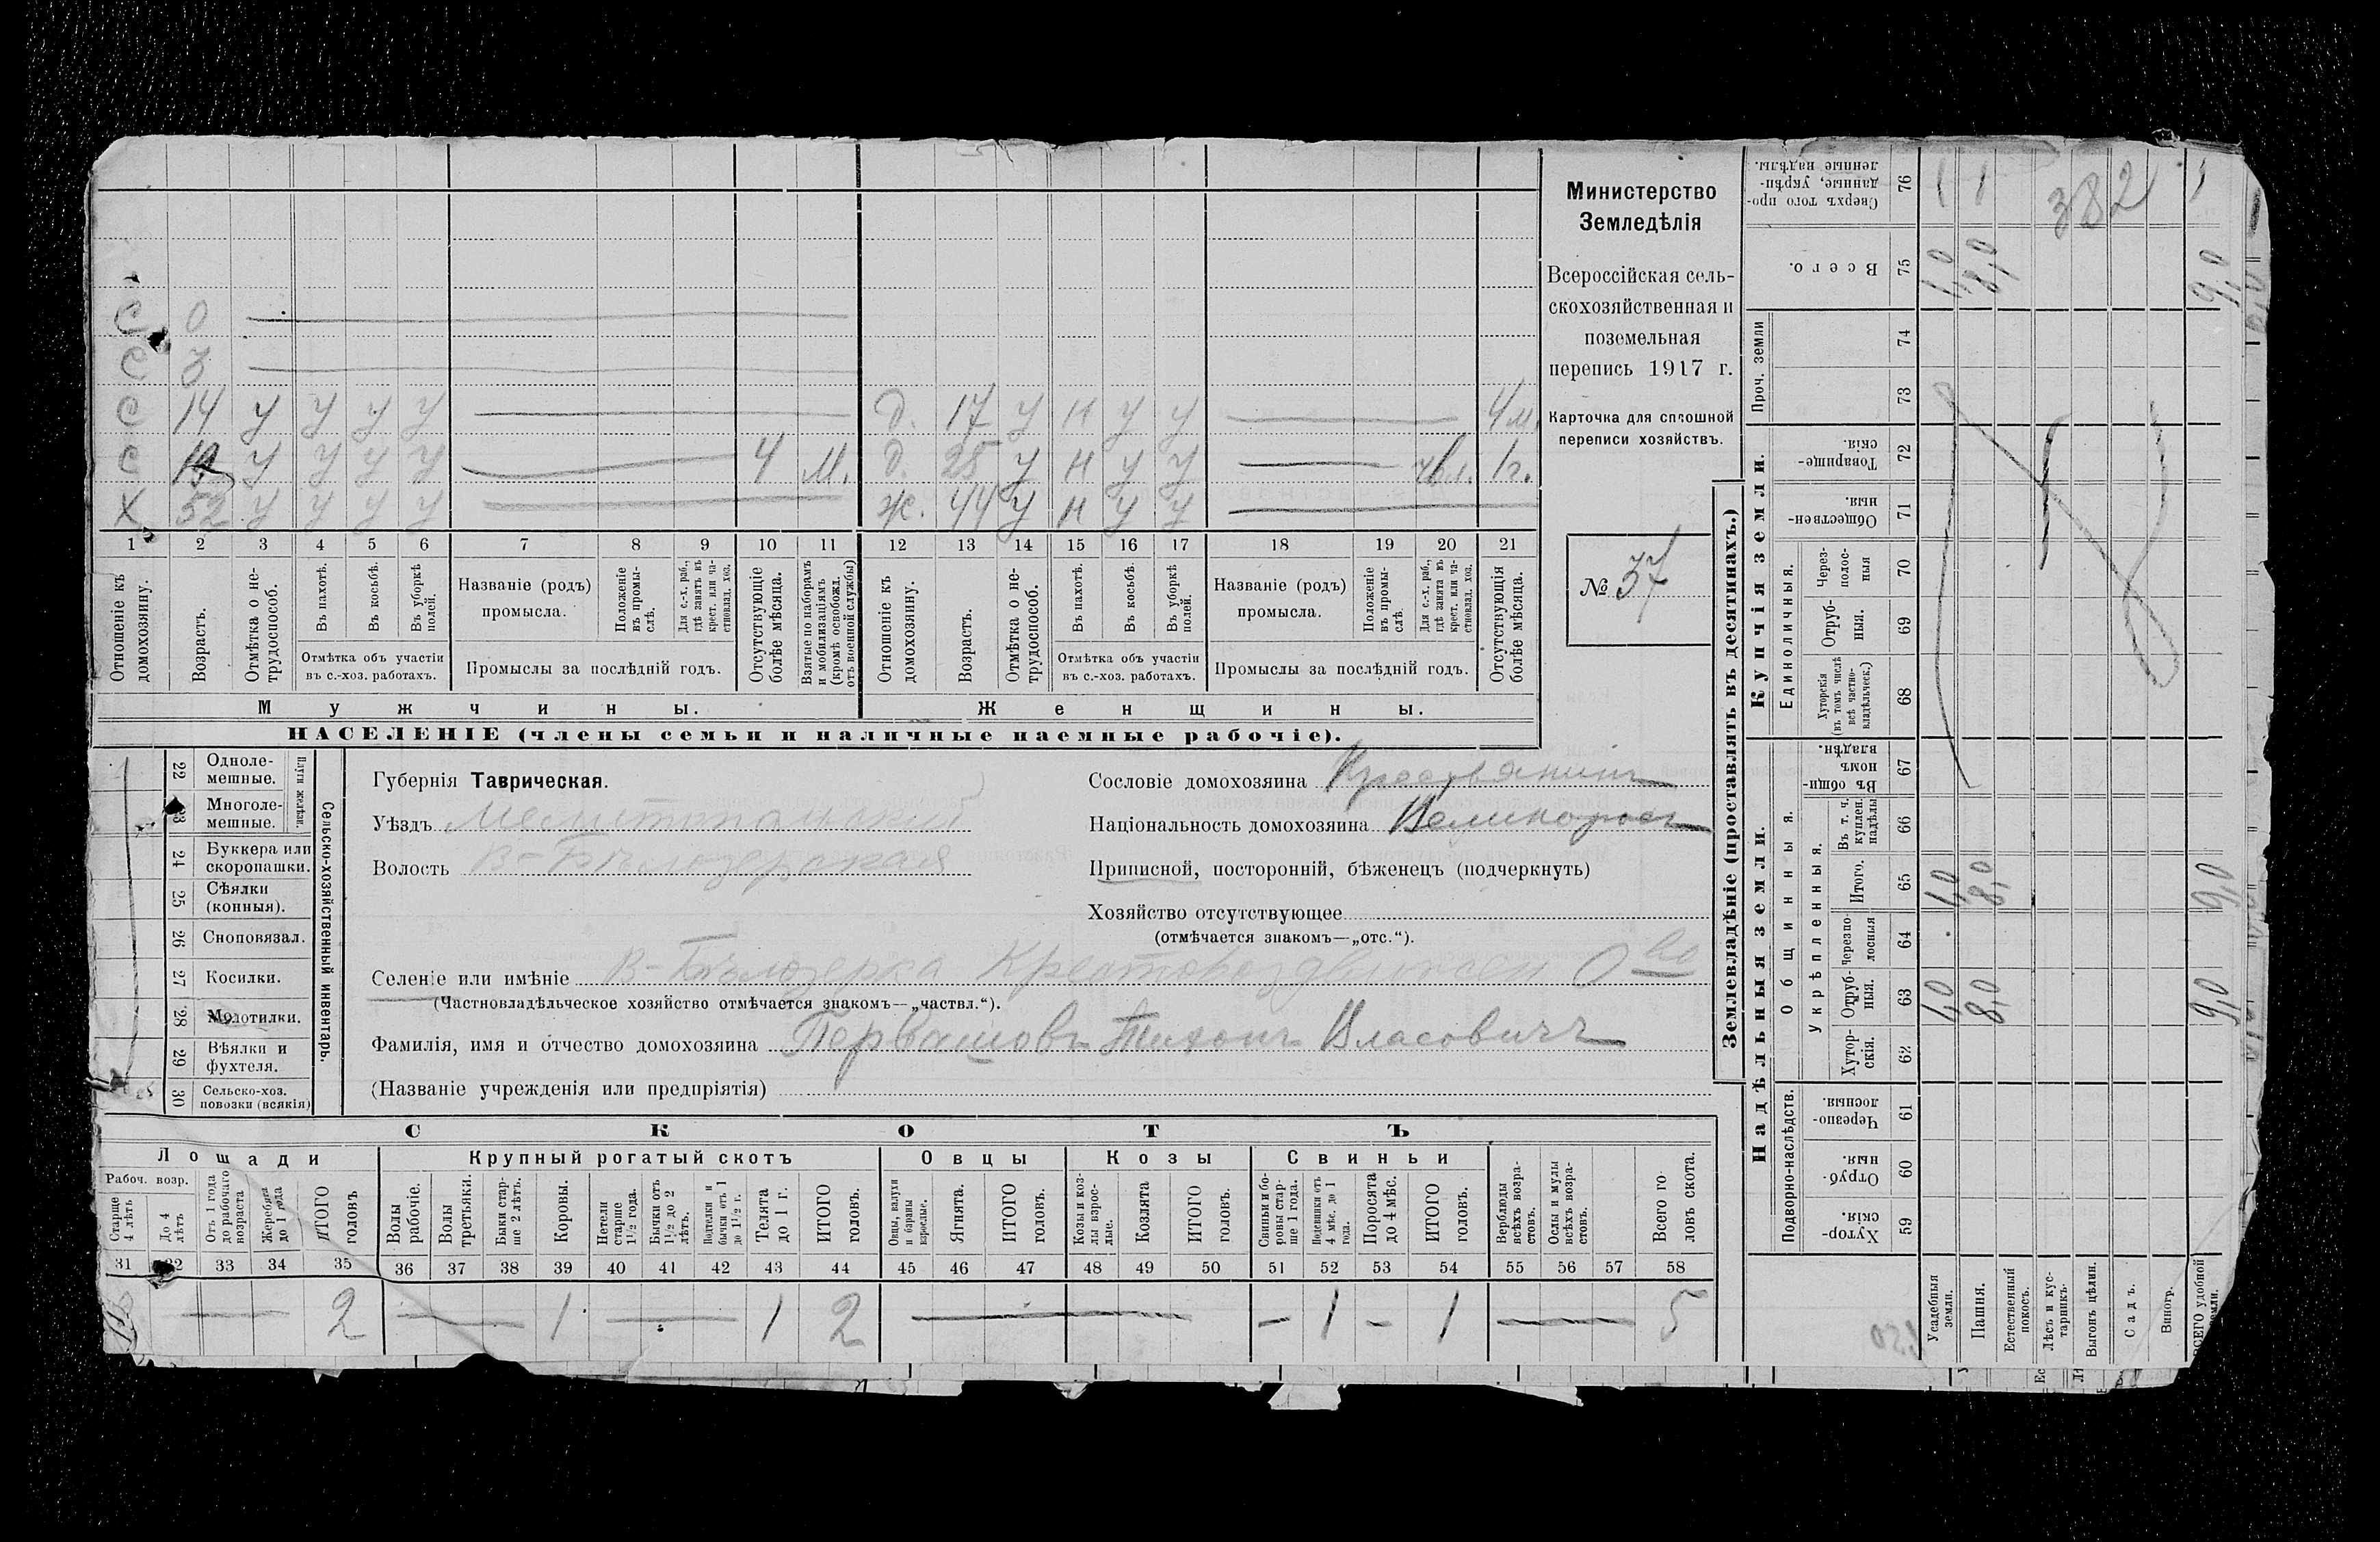 Министерство
Земледѣлія
Всероссійская сель-
скохозяйственная и
поземельная
перепись 1917 г.
Карточка для сплошной
переписи хозяйствъ.
№ 37
С 0
С 3
С 14 У У У У
Д. 17 У Н У У 4 м.
С У У У У 4 М.
Д. 28 У Н У У 1 г.
Х 52 У У У У
Ж. 44 У Н У У
1 2 3 4 5 6 7 8 9 10 11 12 13 14 15 16 17 18 19 20 21
Отношеніе къ домохозяину.
Возрастъ.
Отмѣтка о не-трудоспособ.
Въ пахотѣ.
Въ косьбѣ.
Въ уборкѣ полей.
Отмѣтка объ участіи
въ с.-хоз. работахъ.
Названіе (родъ)
промысла.
Положеніе въ промы-слѣ.
Для с.-х. раб., гдѣ занятъ въ крест. или ча-стновлад. хоз.
Промыслы за послѣдній годъ.
Отсутствующіе болѣе мѣсяца.
Взятые по наборамъ и мобилизаціямъ (кромѣ освобожд. отъ военной службы)
Отношеніе къ домохозяину.
Возрастъ.
Отмѣтка о не-трудоспособ.
Въ пахотѣ.
Въ косьбѣ.
Въ уборкѣ полей.
Отмѣтка объ участіи
въ с.-хоз. работахъ.
Названіе (родъ)
промысла.
Положеніе въ промы-слѣ
Для с.-х. раб., гдѣ занята въ крест. или ча-стновлад. хоз.
Промыслы за послѣдній годъ.
Отсутствующія болѣе мѣсяца.
Мужчины.
Женщины.
НАСЕЛЕНІЕ (члены семьи и наличные наемные рабочіе).
22 Одноле-мешные.
23 Многоле-мешные.
Плуги желѣзн.
24 Буккера или скоропашки.
25 Сѣялки (конныя).
26 Сноповязал.
27 Косилки.
28 Молотилки.
29 Вѣялки и фухтеля.
30 Сельско-хоз. повозки (всякія)
Сельско-хозяйственный инвентарь.
Губернія Таврическая.
Уѣздъ Мелитопольский
Волость В-Бѣлозерская
Сословіе домохозяина Крестьянинъ
Національность домохозяина Великоросъ
Приписной, посторонній, бѣженецъ (подчеркнуть)
Хозяйство отсутствующее
(отмѣчается знакомъ—„отс.“).
Селеніе или имѣніе В-Бѣлозерка Крестовоздвиженск О-во
(Частновладѣльческое хозяйство отмѣчается знакомъ—„частвл.“).
Фамилія, имя и отчество домохозяина Первашовъ Тихонъ Власовичъ
(Названіе учрежденія или предпріятія)
СКОТЪ
Лошади
Рабоч. возр.
Старше 4 лѣтъ
До 4 лѣтъ
Отъ 1 года до рабочаго возраста
Жеребята до 1 года
ИТОГО головъ
Крупный рогатый скотъ
Волы рабочіе.
Волы третьяки.
Быки стар-ше 2 лѣтъ.
Коровы.
Нетели старше 1½ года.
Бычки отъ 1½ до 2 лѣтъ.
Подтелки и бычки отъ 1 до 1½ г.
Телята до 1 г.
ИТОГО головъ.
Овцы
Овцы, валухи и бараны взрослые.
Ягнята.
ИТОГО головъ.
Козы
Козы и коз-лы взрос-лые.
Козлята
ИТОГО головъ.
Свиньи
Свиньи и бо-ровы стар-ше 1 года.
Подсвинки отъ 4 мѣс. до 1 года.
Поросята до 4 мѣс.
ИТОГО головъ.
Верблюды всѣхъ возра-стовъ.
Ослы и мулы всѣхъ возра-стовъ.
Всего го-ловъ скота.
31 32 33 34 35 36 37 38 39 40 41 42 43 44 45 46 47 48 49 50 51 52 53 54 55 56 57 58
— 2 — 1 — 1 2 — — 1 — 1 — 5
Землевладѣніе (проставлять въ десятинахъ.)
Надѣльныя земли.
Купчія земли.
Подворно-наслѣдств.
Общинныя.
Укрѣпленныя.
Единоличныя.
Проч. земли
59 Хутор-скія.
60 Отруб-ныя.
61 Черезпо-лосныя.
62 Хутор-скія.
63 Отруб-ныя.
64 Черезпо-лосныя
65 Итого.
66 Въ т. ч. куплен. надѣлы
67 Въ общин-номъ владѣн.
68 Хуторскія (въ томъ числѣ всѣ частно-владѣльческ.)
69 Отруб-ныя.
70 Через-полос-ныя
71 Обществен-ныя.
72 Товарище-скія.
73
74
75 Всего.
76 Сверхъ того про-данные, укрѣп-ленные надѣлы.
Усадебныя земли.
Пашня.
Естественный покосъ.
Лѣсъ и кус-тарникъ.
Выгонъ цѣлин.
Садъ.
Виногр.
ВСЕГО удобной земли.
1,0 8,0 9,0
1,0 8,0 9,0
1,0 8,0 9,0
382